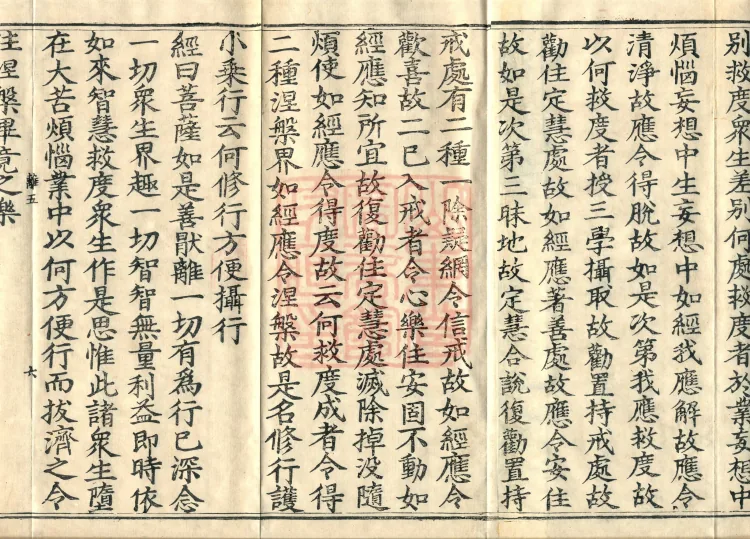 別救度衆生差別何處救度者於業妄想中
煩惱妄想中生妄想中如經我應解故應令
清淨故應令得脫故如是次第我應救度故
以何救度者授三學攝取故勸置持戒處故
勸住定慧處故如經應著善處故應令安住
故如是次第三昧地故定慧合說復勸置持
戒處有二種一除疑網令信戒故如經應令
歡喜故二已入戒者令心樂住安固不動如
經應知所宜故復勸住定慧處滅除掉没隨
煩使如經應令得度故云何救度成者令得
二種涅槃界如經應令涅槃故是名修行護
小乘行云何修行方便攝行
經曰菩薩如是善猒離一切有爲行已深念
一切衆生界趣一切智智無量利益即時依
如來智慧救度衆生作是思惟此諸衆生墮
在大苦煩惱業中以何方便行而拔濟之令
住涅槃畢竟之樂
六